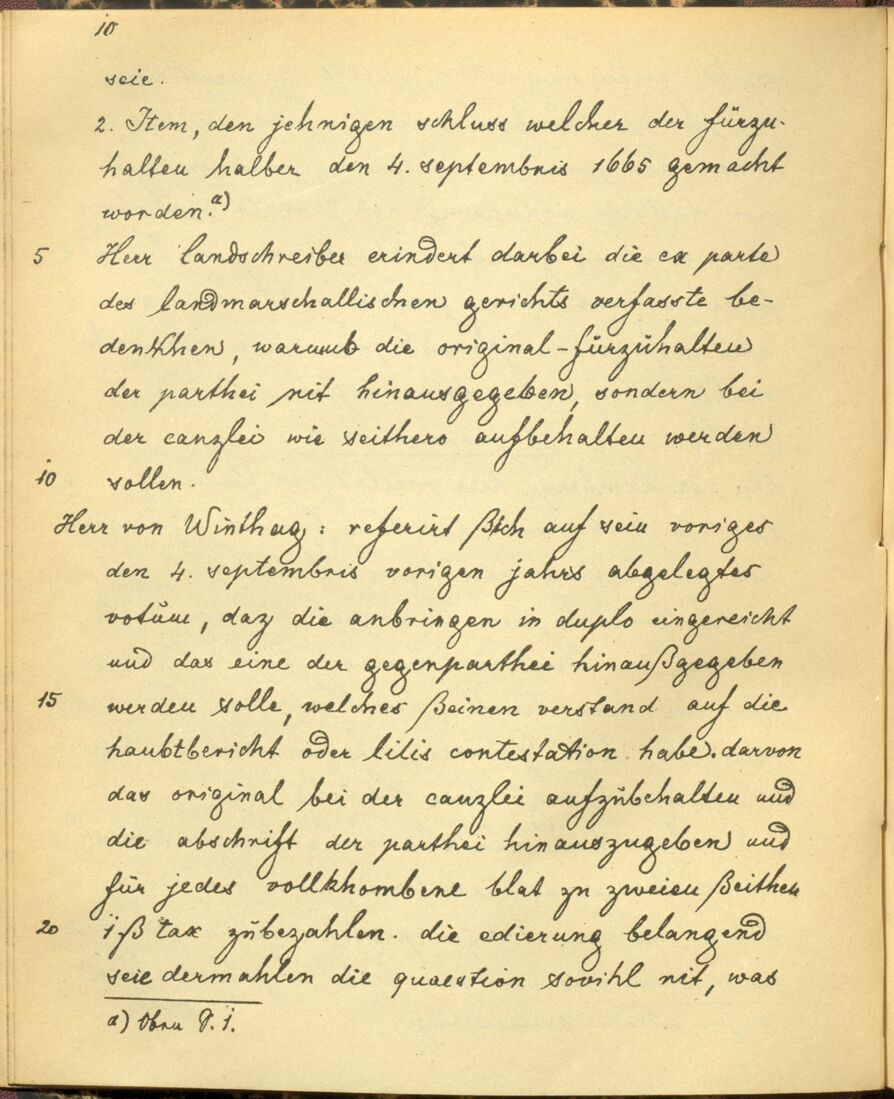 10
seie.
2. Item, den jehnigen schluss welcher der fürzu-
halten halber den 4. septembris 1665 gemacht
worden. a)
5 Herr landschreiber erindert darbei die ex parte
des landmarschallischen gerichts verfasste be-
denkhen, warumb die original-fürzuhalten
der parthei nit hinausgegeben, sondern bei
der canzlei wie seithero aufbehalten werden
10 sollen.
Herr von Winthag: referirt sich auf sein voriges
den 4. septembris vorigen jahrs abgelegtes
votum, daz die anbringen in duplo eingereicht
und das eine der gegenparthei hinaußgegeben
15 werden solle, welches ßeinen verstand auf die
haubtbericht oder litis contestation habe. darvon
das original bei der canzlei aufzubehalten und
die abschrift der parthei hinauszugeben und
für jedes vollkhombene blat zu zweien ßeithen
20 1 ß tax zubezahlen. die edierung belangend
seie dermahlen die quaestion sovihl nit, was
a) Obru P. 1.